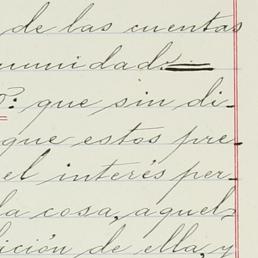 de las cuentas
munidad.
que sin di-
que estos pre-
el interés per-
la cosa, aquel-
lición de ella, y